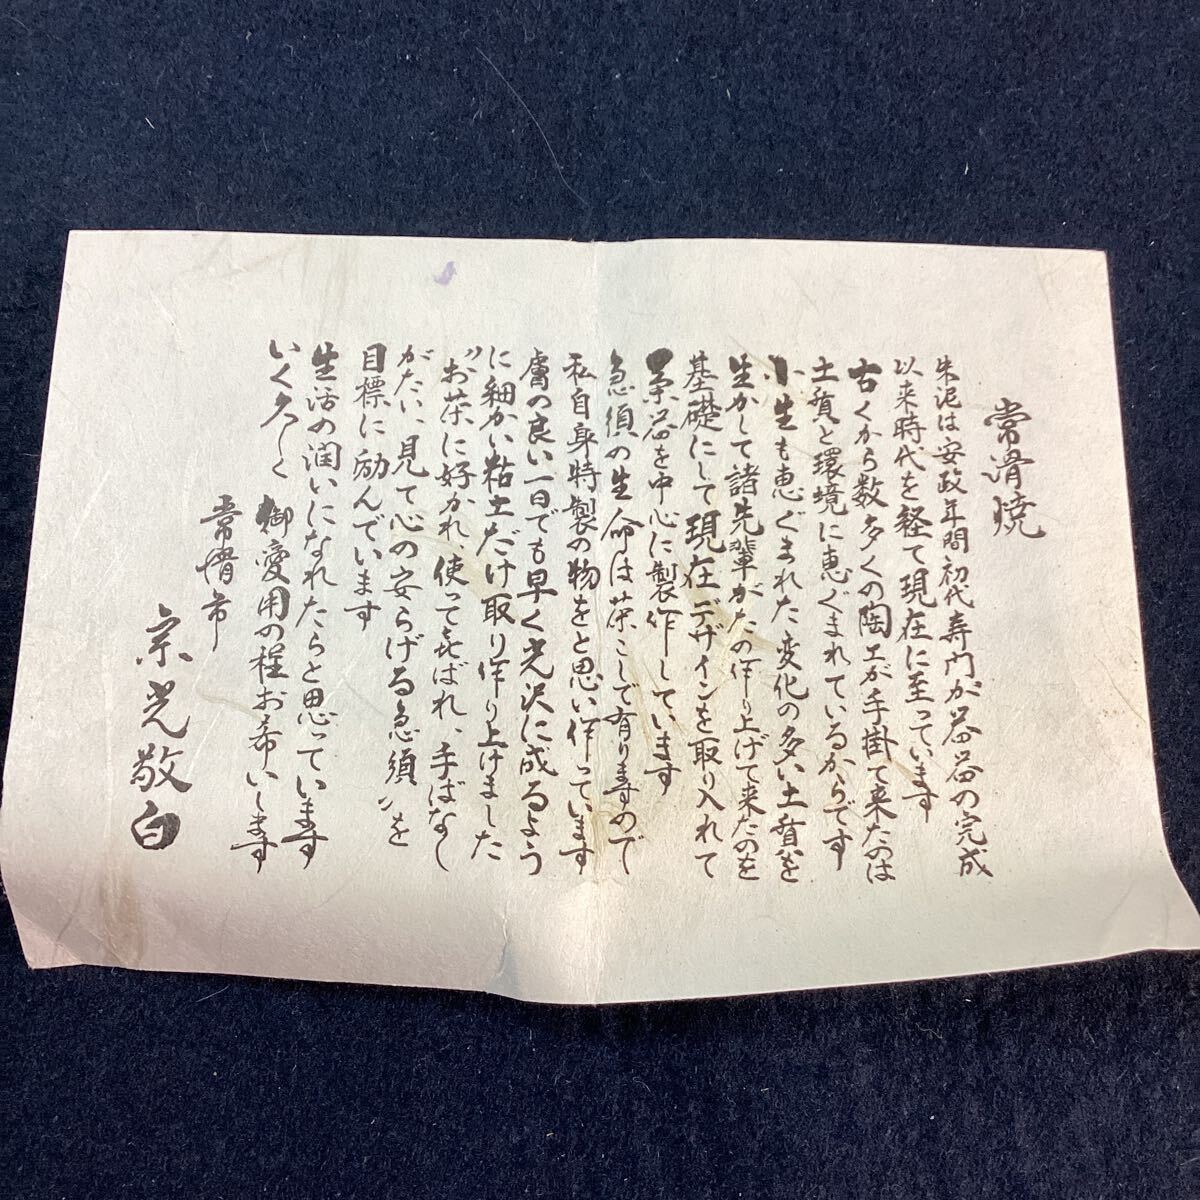 常滑焼
朱泥は安政年間初代寿門が茶器の完成
以来時代を経て現在に至っています
古くから数多くの陶工が手掛て来たのは
土質と環境に恵ぐまれているからです
小生も恵ぐまれた変化の多い土質を
生かして諸先輩がたの作り上げて来たのを
基礎にして現在デザインを取り入れて
茶器を中心に製作しています
急須の生命は茶こしで有りますので
私自身特製の物をと思い作っています
膚の良い一日でも早く光沢に成るよう
に細かい粘土だけ取り作り上げました
〃お茶に好かれ、使って㐂ばれ、手ばなし
がたい、見て心の安らげる急須〃を
目標に励んでいます
生活の潤いになれたらと思っています
いく久しく 御愛用の程お希いします
常滑市
宗光敬白